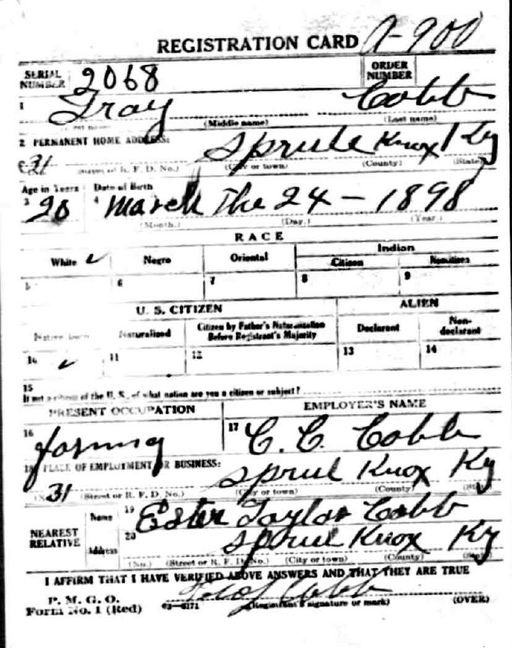 REGISTRATION CARD A-900
SERIAL NUMBER 2068 ORDER NUMBER
1 Troy Cobb
(Middle name) (Last name)
2 PERMANENT HOME ADDRESS: Sprule Knox Ky
31 (Street or R. F. D. No.) (City or town) (County) (State)
Age in Years Date of Birth
3 20 4 March The 24 - 1898
(Month.) (Day.) (Year.)
RACE
White ✓ Negro Oriental Indian
Citizen Noncitizen
5 6 7 8 9
U. S. CITIZEN ALIEN
Native born Naturalized Citizen by Father's Naturalization Before Registrant's Majority Declarant Non-declarant
10 ✓ 11 12 13 14
15
If not a citizen of the U. S., of what nation are you a citizen or subject?
PRESENT OCCUPATION EMPLOYER'S NAME
16 farming 17 C. C. Cobb
18 PLACE OF EMPLOYMENT OR BUSINESS: Sprul Knox Ky
31 (Street or R. F. D. No.) (City or town) (County) (State)
NEAREST RELATIVE Name 19 Ester Taylor Cobb
Address 20 Sprul Knox Ky
(No.) (Street or R. F. D. No.) (City or town) (County) (State)
I AFFIRM THAT I HAVE VERIFIED ABOVE ANSWERS AND THAT THEY ARE TRUE
P. M. G. O.
Form No. 1 (Red) 03-6171 Cobb
(Registrant's signature or mark) (OVER)